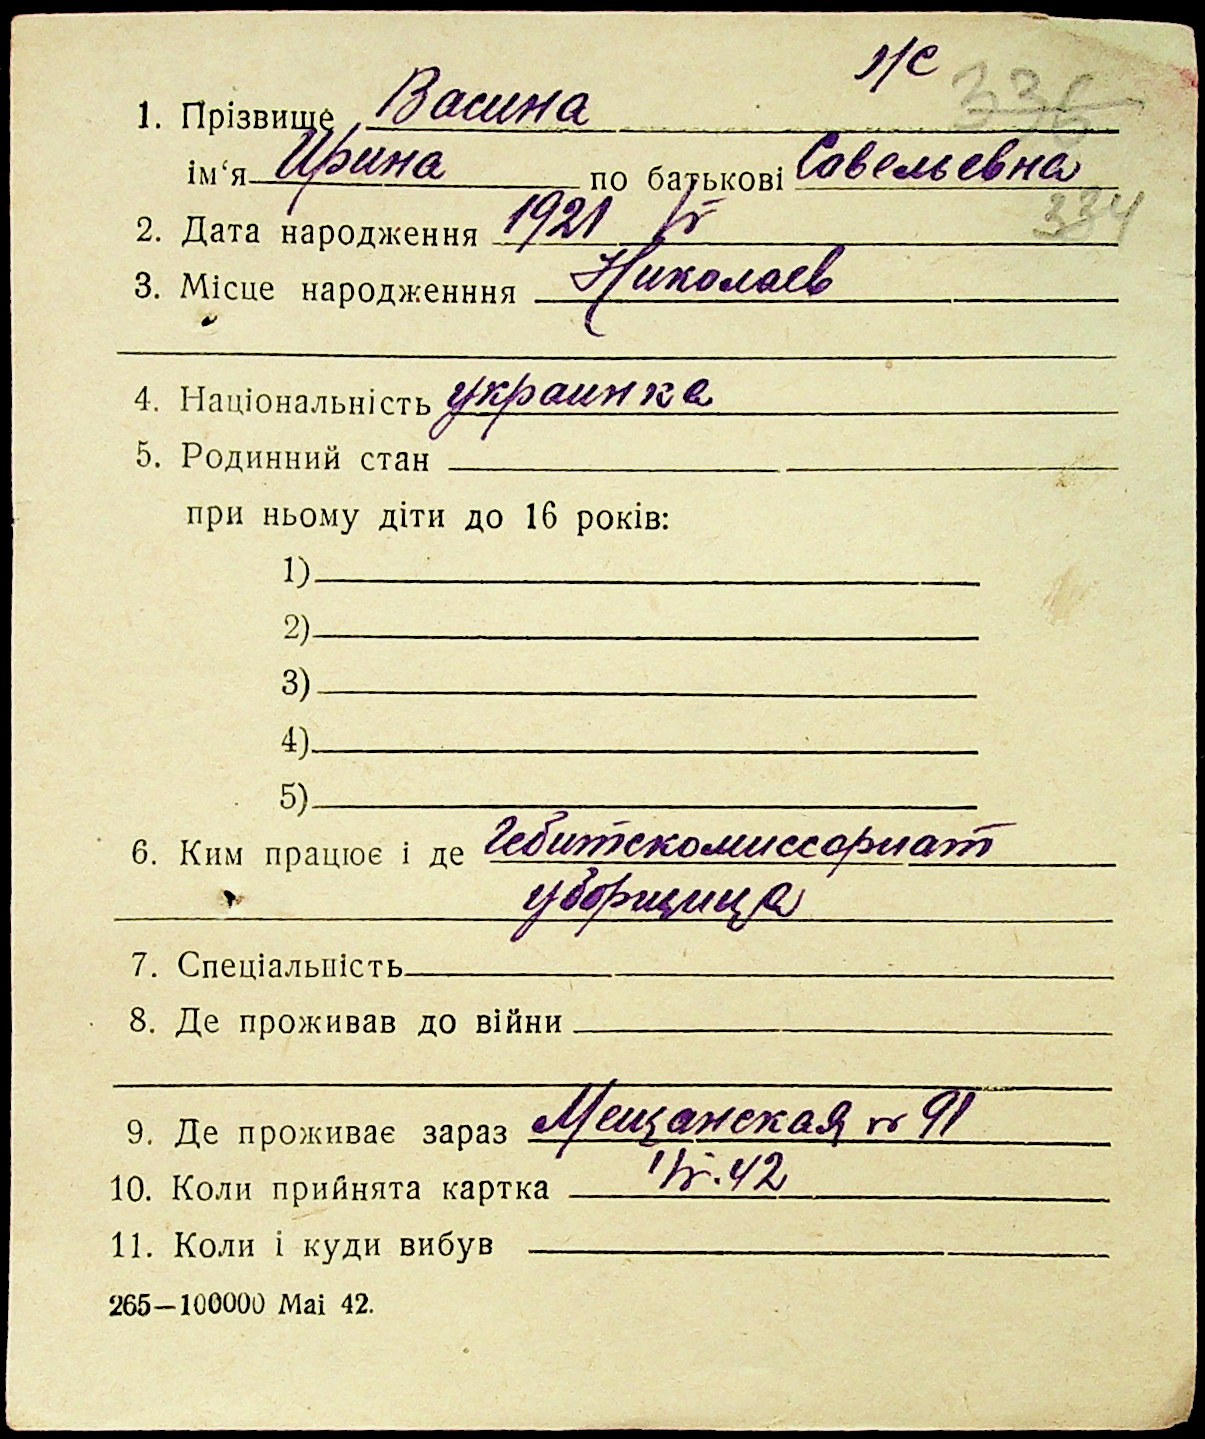 н/с
336
1. Прізвище Васина
ім‘я Ирина по батькові Савельевна
334
2. Дата народження 1921
3. Місце народженння Николаев
4. Національність украинка
5. Родинний стан
при ньому діти до 16 років:
1)
2)
3)
4)
5)
6. Ким працює і де Гебитскомиссариат
уборщица
7. Спеціальність
8. Де проживав до війни
9. Де проживає зараз Мещанская № 91
10. Коли прийнята картка 42
11. Коли і куди вибув
265—100000 Маі 42.